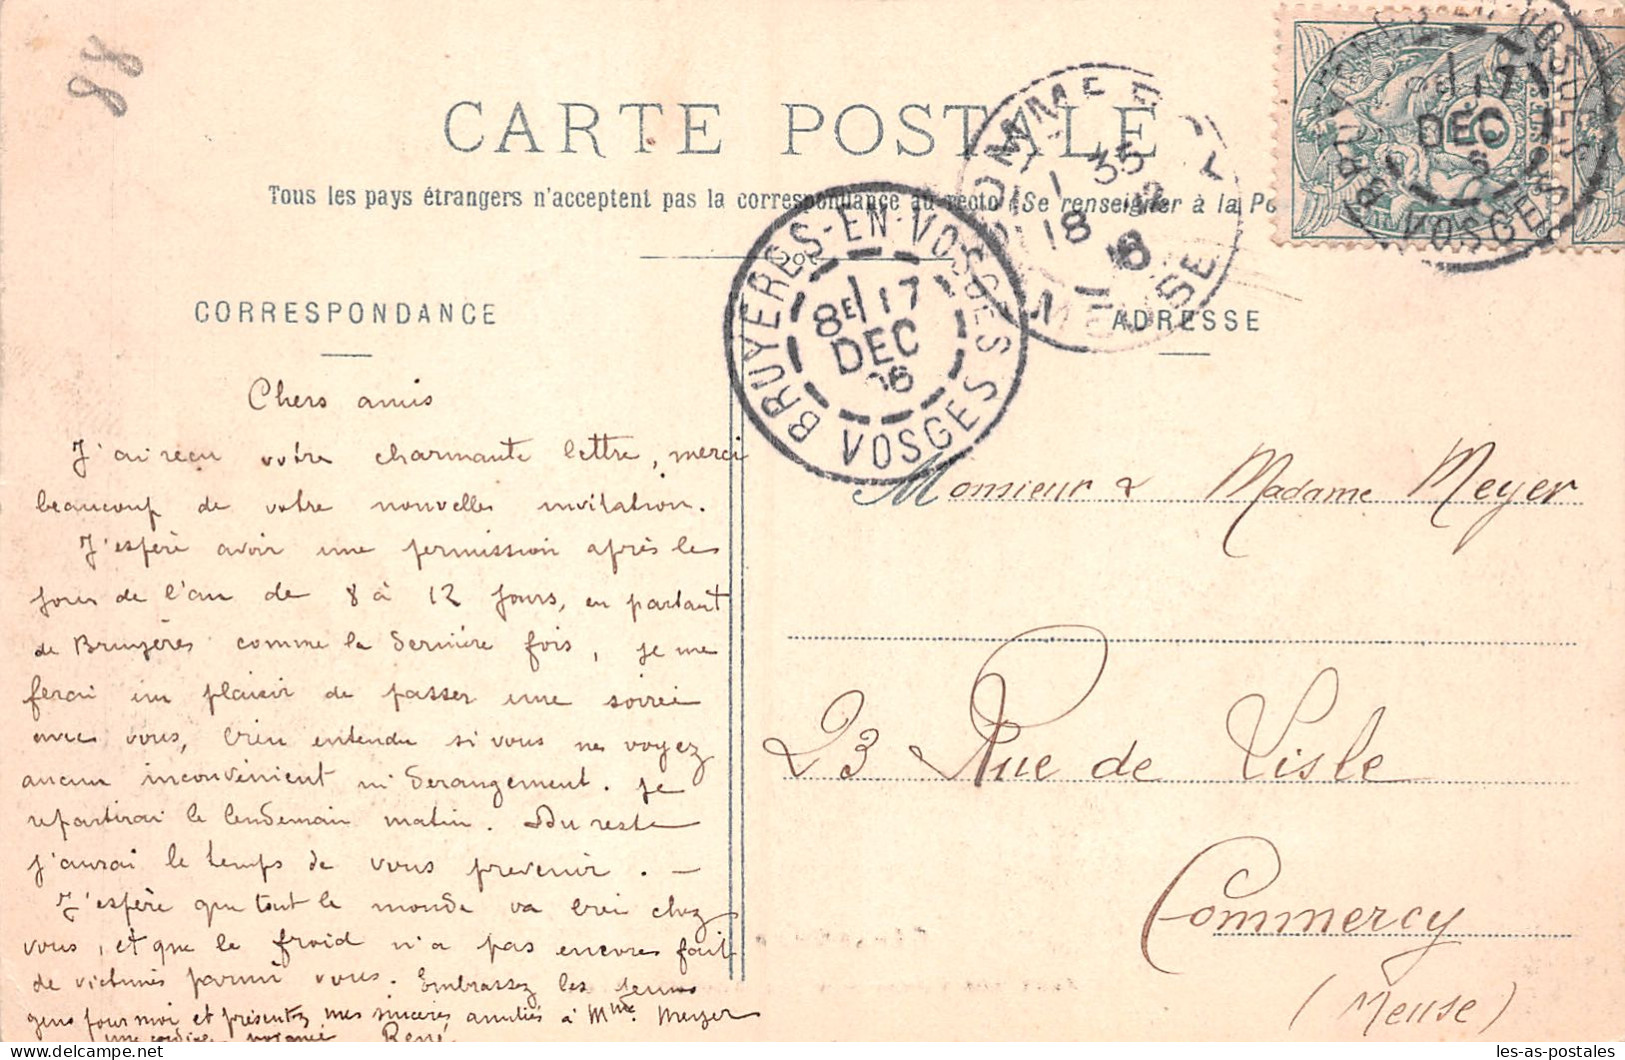 88
CARTE POSTALE
Tous les pays étrangers n'acceptent pas la correspondance au recto (Se renseigner à la Po
CORRESPONDANCE
ADRESSE
BRUYERES-EN-VOSGES
8E 17
DEC
06
VOSGES
COMMERCY
1 35
18 12
06
MEUSE
BRUYERES-EN-VOSGES
8E 17
DEC
06
VOSGES
Chers amis
J'ai reçu votre charmante lettre, merci
beaucoup de votre nouvelles invitation.
J'espère avoir une permission après les
jours de l'an de 8 à 12 jours, en partant
de Bruyères comme la dernière fois, je me
ferai un plaisir de passer une soirée
avec vous, bien entendu si vous ne voyez
aucun inconvénient ni derangement. Je
repartirai le lendemain matin. Du reste
j'aurai le temps de vous prevenir. —
J'espère que tout le monde va bien chez
vous, et que le froid n'a pas encores fait
de victimes parmi vous. Embrassez les jeunes
gens pour moi et présentez mes sincères amitiés à Mme. Meyer
une cordiale poignée René
Monsieur & Madame Meyer
23 Rue de Lisle
Commercy
(Meuse)
les-as-postales